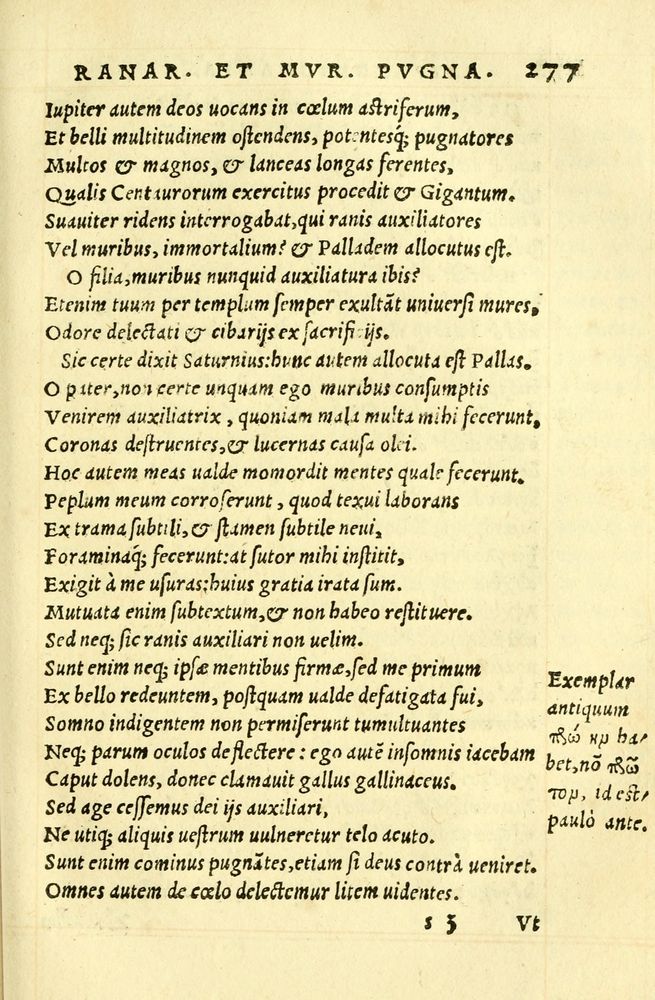 RANAR. ET MVR. PVGNA. 277
Iupiter autem deos uocans in cœlum astriferum,
Et belli multitudinem ostendens, potentesq; pugnatores
Multos & magnos, & lanceas longas ferentes,
Qualis Centaurorum exercitus procedit & Gigantum.
Suauiter ridens interrogabat, qui ranis auxiliatores
Vel muribus, immortalium? & Palladem allocutus est.
O filia, muribus nunquid auxiliatura ibis?
Etenim tuum per templum semper exultāt uniuersi mures,
Odore delectati & cibarijs ex sacrificijs.
Sic certe dixit Saturnius: hunc autem allocuta est Pallas.
O pater, non certe unquam ego muribus consumptis
Venirem auxiliatrix, quoniam mala multa mihi fecerunt,
Coronas destruentes, & lucernas causa olei.
Hoc autem meas ualde momordit mentes quale fecerunt.
Peplum meum corroserunt, quod texui laborans
Ex trama subtili, & stamen subtile neui,
Foraminaq; fecerunt: at sutor mihi institit,
Exigit à me usuras: huius gratia irata sum.
Mutuata enim subtextum, & non habeo restituere.
Sed neq; sic ranis auxiliari non uelim.
Sunt enim neq; ipsæ mentibus firmæ, sed me primum
Ex bello redeuntem, postquam ualde defatigata fui,
Somno indigentem non permiserunt tumultuantes
Neq; parum oculos deflectere: ego autē insomnis iacebam
Caput dolens, donec clamauit gallus gallinaceus.
Sed age cessemus dei ijs auxiliari,
Ne utiq; aliquis uestrum uulneretur telo acuto.
Sunt enim cominus pugnātes, etiam si deus contrà ueniret.
Omnes autem de cœlo delectemur litem uidentes.
Exemplar
antiquum
ha/
bet, nō
id est/
paulò ante.
s 3 Vt